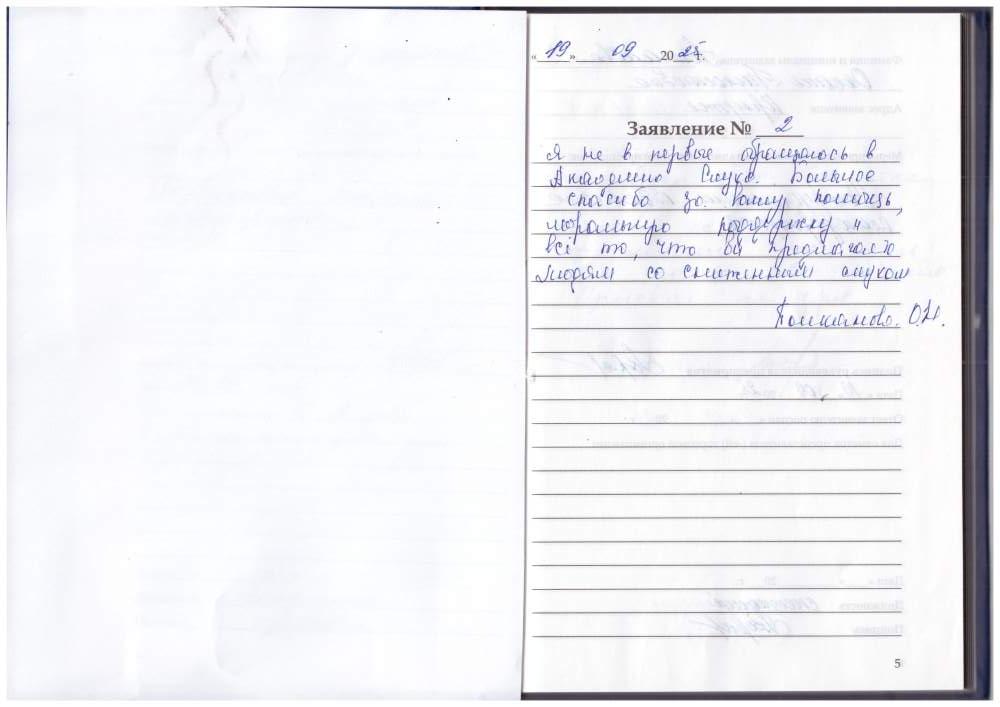 «19» 09 2025 г.
Заявление № 2
Я не в первые обращалось в
Академию Слуха. Большое
спасибо за Вашу помощь,
моральную поддержку и
всё то, что вы предлагаете
людям со сниженным слухом
О.Н.
5